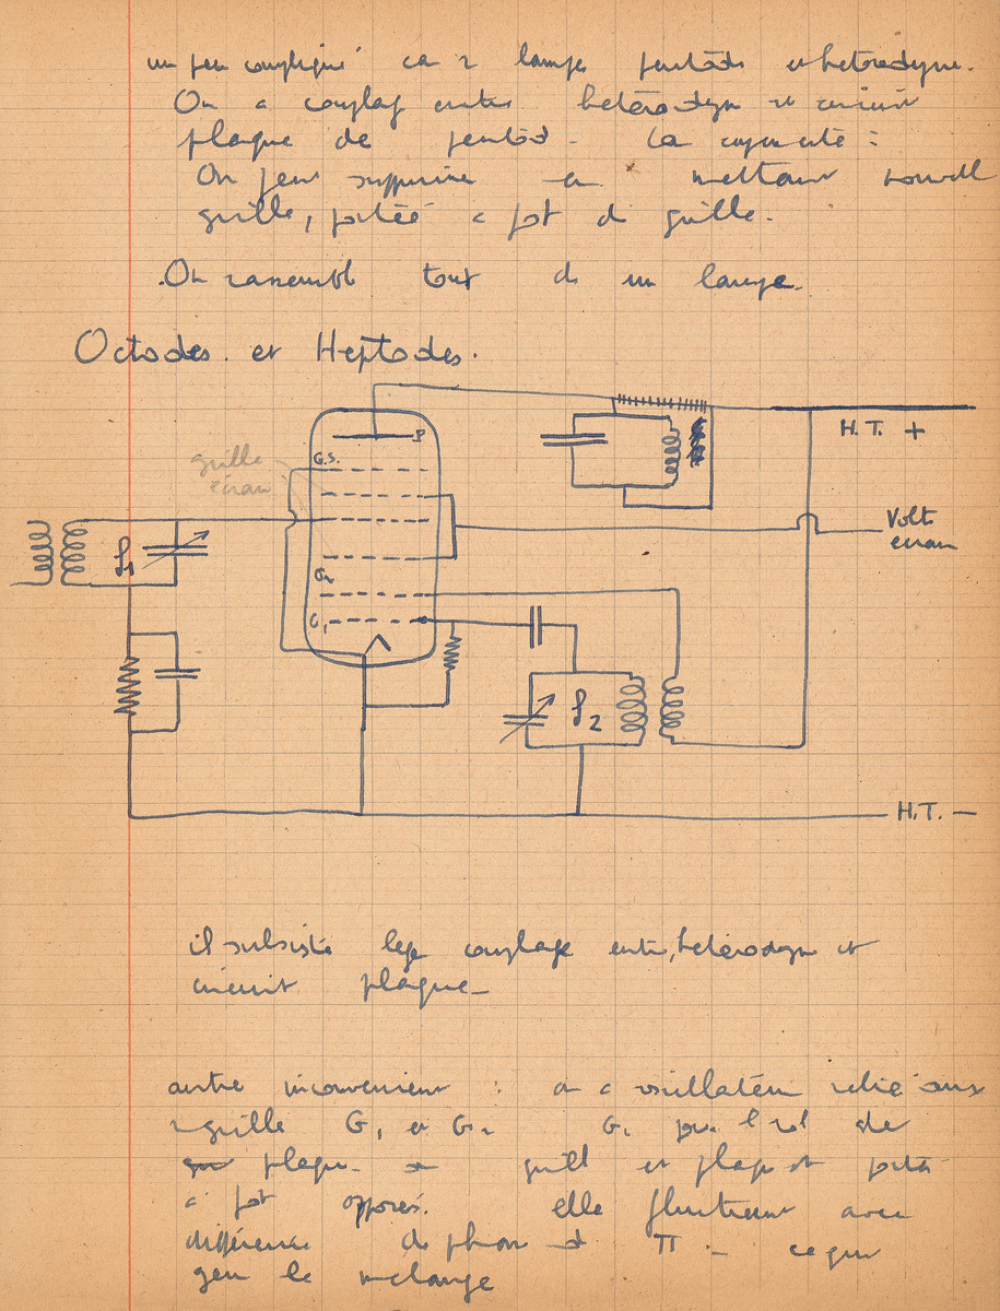 un peu compliqué car 2 lampes pentode et hétérodyne.
On a couplage entre hétérodyne et circuit
plaque de pentode - la capacité :
On peut supprime en mettant nouvelle
grille, portée a pot de grille.
.On rassemble tout ds un lampe.
Octodes. et Heptodes.
P
H.T. +
G.S.
grille
écran
Volts
écran
f1
G2
G1
f2
H.T. —
il subsiste leger couplage entre, hétérodyne et
circuit plaque -
autre inconvenient : on a oscillateur relié aux
2 grille G1 et G2 G2 joue le rol de
plaque. grille et plaque st portés
a pot opposés. elle fluctuent avec
différence de phase de π - ce qui
gen le mélange